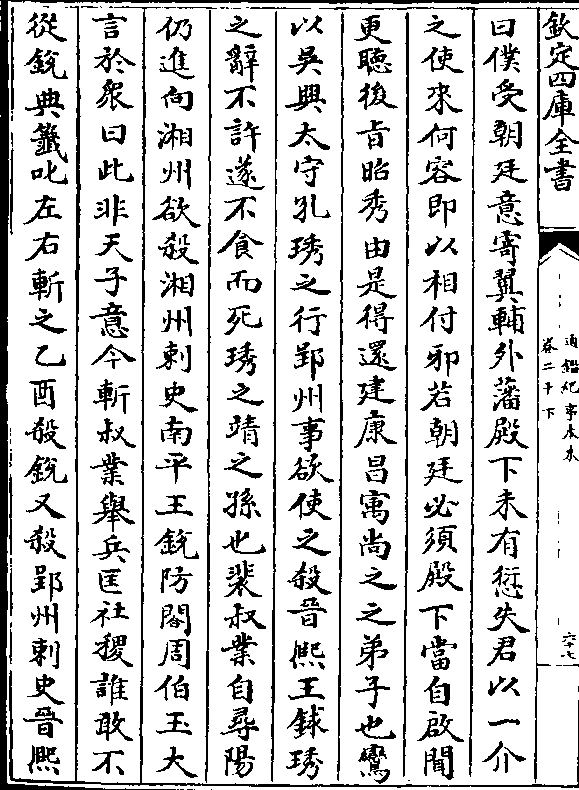 欽定四庫全書
通鑑紀事本末
卷二十下
六十七
曰僕受朝廷意寄翼輔外藩殿下未有愆失君以一介
之使來何容即以相付邪若朝廷必須殿下當自啟聞
更聽後旨昭秀由是得還建康昌㝢尚之之弟子也鸞
以吳興太守孔琇之行郢州事欲使之殺晉熙王銶琇
之辭不許遂不食而死琇之靖之孫也裴叔業自尋陽
仍進向湘州欲殺湘州刺史南平王銳防閤周伯玉大
言於衆曰此非天子意今斬叔業舉兵匡社稷誰敢不
從銳典籖叱左右斬之乙酉殺銳又殺郢州刺史晉熙